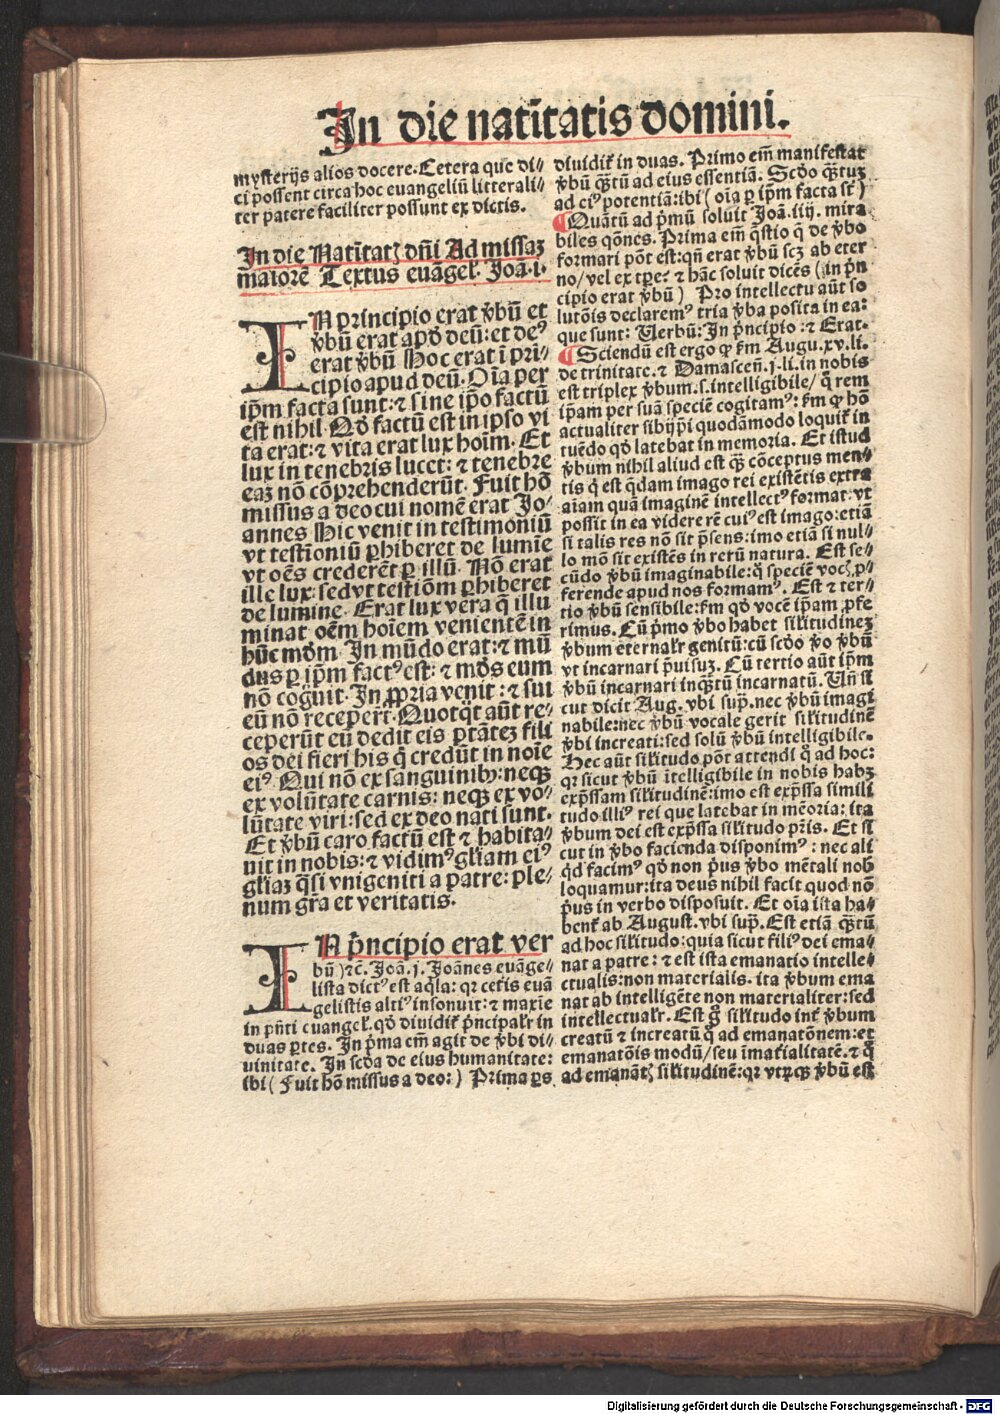 In die natītatis domini.
mysterijs alios docere. Cetera que di//
ci possent circa hoc euangeliū litterali//
ter patere faciliter possunt ex dictis.
In die Natītatꝭ dn̄i Ad missaꝫ
maiorē Textus euāgel̕. Joā.i.
IN principio erat v̓bū et
v̓bū erat apd̓ deū: et deꝰ
erat v̓bū Hoc erat ī pri//
cipio apud deū. Oīa per
ip̄m facta sunt: ⁊ sine ip̄o factū
est nihil. Qd̓ factū est in ipso vi
ta erat: ⁊ vita erat lux hoīm. Et
lux in tenebris lucet: ⁊ tenebre
eaꝫ nō cōprehenderūt. Fuit hō
missus a deo cui nomē erat Jo//
annes Hic venit in testimoniū
vt testīoniū ꝑhiberet de lumīe
vt oēs crederēt ꝑ illū. Nō erat
ille lux: sed vt testiōm ꝑhiberet
de lumine. Erat lux vera q̄ illu
minat oēm hoīem venientē in
hūc mōm. In mūdo erat: ⁊ mū
dus ꝑ ip̄m factꝰ est: ⁊ mōs eum
nō cog̓uit. In ꝓpria venit: ⁊ sui
eū nō receper̄t. Quotq̓t aūt re//
ceperūt eū dedit eis ꝑtātez fili
os dei fieri his q̓ credūt in noīe
eiꝰ Qui nō ex sanguinibꝰ: neqꝫ
ex volūtate carnis: neqꝫ ex vo//
lūtate viri: sed ex deo nati sunt.
Et v̓bū caro factū est ⁊ habita//
uit in nobis: ⁊ vidimꝰ gl̓iam eiꝰ
gl̓iaꝫ q̄si vnigeniti a patre: ple//
num gr̄a et veritatis.
IN p̓ncipio erat ver
bū) ⁊c̄. Joā.j. Joānes euāge//
lista dictꝰ est aq̓la: qr̄ cetis euā
gelistis altiꝰ insonuit: ⁊ maxīe
in pn̄ti euangel̕. qd̓ diuidit̕ p̓ncipalr̕ in
duas ꝑtes. In p̓ma em̄ agit de v̓bi di//
uinitate. In scd̓a de eius humanitate:
ibi (Fuit hō missus a deo:) Prima ꝑs
diuidit̕ in duas. Primo em̄ manifestat
v̓bū q̄tū ad eius essentiā. Scd̓o q̄tuꝫ
ad eiꝰ potentiā: ibi (oīa ꝑ ip̄m facta sr̄)
¶ Quātū ad p̓mū soluit Joā.iiij. mira
biles qōnes. Prima em̄ q̄stio q̓ de v̓bo
formari pōt est: qn̄ erat v̓bū scꝫ ab eter
no/ vel ex tꝑe: ⁊ hāc soluit dicēs (in p̓n
cipio erat v̓bū) Pro intellectu aūt so
lutōis declaremꝰ tria v̓ba posita in ea:
que sunt: Verbū: In p̓ncipio: ⁊ Erat.
¶ Sciendū est ergo ꝙ fm̄ Augu.xv.li.
de trinitate. ⁊ Damascen̄.j.li. in nobis
est triplex v̓bum. s. intelligibile/ q̓ rem
ip̄am per suā speciē cogitamꝰ: fm̄ ꝙ hō
actualiter sibijp̄i quodāmodo loquit̕ in
tuēdo qd̓ latebat in memoria. Et istud
v̓bum nihil aliud est q̄ cōceptus men//
tis q̓ est q̄dam imago rei existētis extra
aīam quā imaginē intellectꝰ format: vt
possit in ea videre rē cuiꝰ est imago: etiā
si talis res nō sit p̄sens: imo etiā si nul//
lo mō sit existēs in rerū natura. Est se//
cūdo v̓bū imaginabile: q̓ speciē vocꝭ ꝓ//
ferende apud nos formamꝰ. Est ⁊ ter//
tio v̓bū sensibile: fm̄ qd̓ vocē ip̄am ꝓfe
rimus. Cū p̓mo v̓bo habet sil̓itudineꝫ
v̓bum eternalr̕ genitū: cū scd̓o v̓o v̓bū
vt incarnari p̄uisuꝫ. Cū tertio aūt ip̄m
v̓bū incarnari inq̄tū incarnatū. Vn̄ si
cut dicit Aug. vbi sup̄. nec v̓bū imagi
nabile: nec v̓bū vocale gerit sil̓itudinē
v̓bi increati: sed solū v̓bū intelligibile.
Hec aūt sil̓itudo pōt attendi q̓ ad hoc:
qr̄ sicut v̓bū ītelligibile in nobis habꝫ
exp̄ssam sil̓itudinē: imo est exp̄ssa simili
tudo illiꝰ rei que latebat in mēoria: ita
v̓bum dei est exp̄ssa sil̓itudo pr̄is. Et si
cut in v̓bo facienda disponimꝰ: nec ali
q̓d facimꝰ qd̓ non p̓us v̓bo mētali nob̓
loquamur: ita deus nihil facit quod nō
p̓us in verbo disposuit. Et oīa ista ha//
bent̕ ab August. vbi sup̄. Est etiā q̄tū
ad hoc sil̓itudo: quia sicut filiꝰ dei ema//
nat a patre: ⁊ est ista emanatio intelle//
ctualis: non materialis. ita v̓bum ema
nat ab intelligēte non materialiter: sed
intellectualr̕. Est g̓ sil̓itudo int̕ v̓bum
creatū ⁊ increatū q̓ ad emanatōnem: et
emanatōis modū/ seu īmat̕ialitatē. ⁊ q̓
ad emanātꝭ sil̓itudinē: qr̄ vtrūqꝫ v̓bū est
Digitalisierung gefördert durch die Deutsche Forschungsgemeinschaft - DFG